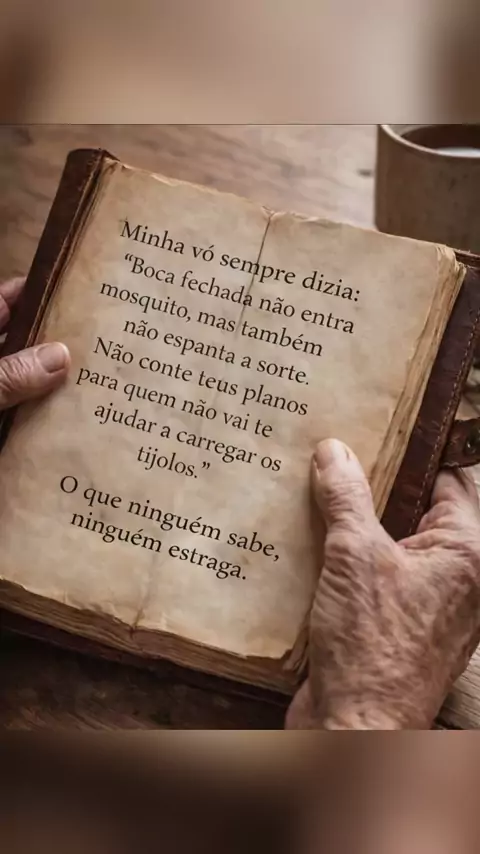 Minha vó sempre dizia:
“Boca fechada não entra
mosquito, mas também
não espanta a sorte.
Não conte teus planos
para quem não vai te
ajudar a carregar os
tijolos.”
O que ninguém sabe,
ninguém estraga.